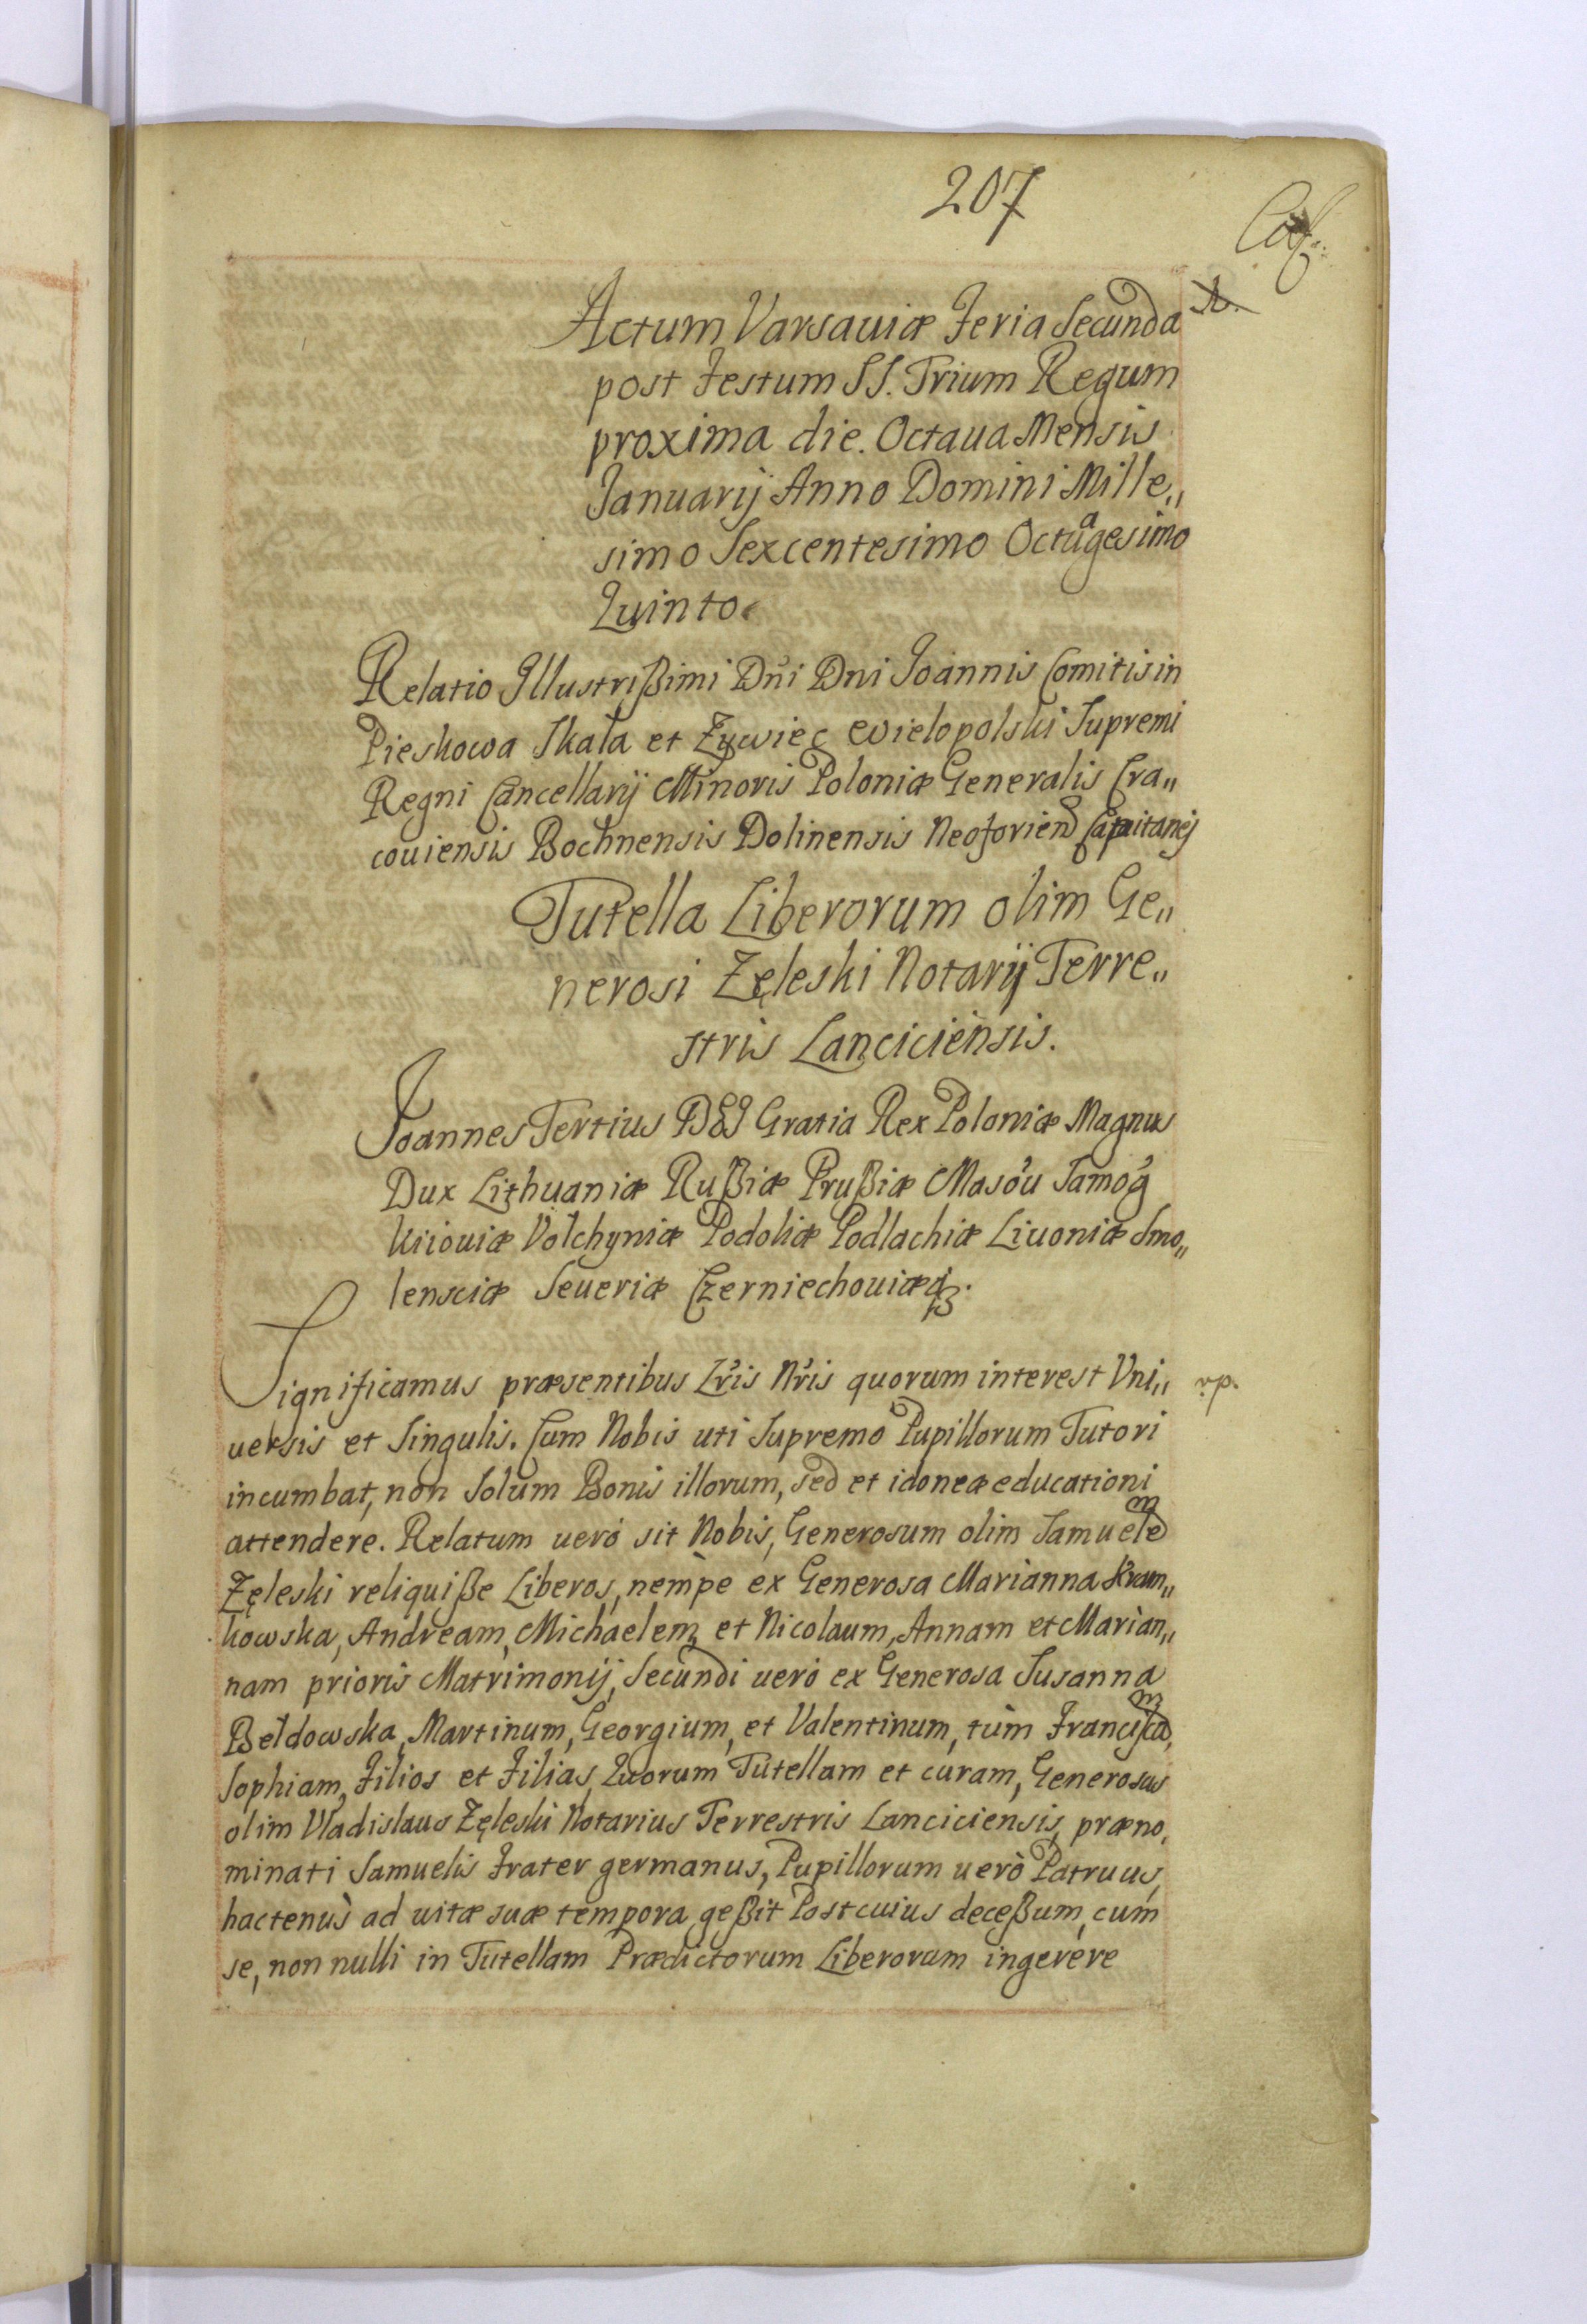 207
Actum Varsauiæ Feria Secunda
post Festum SS. Trium Regum
proxima die. Octaua Mensis
Januarij Anno Domini Mille„
simo Sexcentesimo Octuagesimo
Quinto.
Relatio Illustrißimi Dni Dni Joannis Comitis in
Pieskowa Skała et Zywiec Wielopolski Supremi
Regni Cancellarij Minoris Poloniæ Generalis Cra„
couiensis Bochnensis Dolinensis Neoforien Capitanej
Tutella Liberorum olim Ge„
nerosi Zęleski Notarij Terre„
stris Lanciciensis.
Joannes Tertius DEI Gratia Rex Poloniæ Magnus
Dux Lithuaniæ Rußiæ Prußiæ Masou Samog
Kiiouiæ Volchyniæ Podoliæ Podlachiæ Liuoniæ Smo„
lensciæ Seueriæ Czerniechouiæq3.
Significamus præsentibus Lris Nris quorum interest Vni„
uersis et Singulis. Cum Nobis uti Supremo Pupillorum Tutori
incumbat, non Solum Bonis illorum, sed et idoneæ educationi
attendere. Relatum uerò sit Nobis, Generosum olim Samuelem
Zęleski reliquiße Liberos, nempe ex Generosa Marianna Kram„
kowska, Andream, Michaelem et Nicolaum, Annam et Marian„
nam prioris Matrimonij, Secundi uerò ex Generosa Susanna
Bełdowska, Martinum, Georgium, et Valentinum, tùm Franciscam,
Sophiam, Filios et Filias, Quorum Tutellam et curam, Generosus
olim Vladislaus Zęleski Notarius Terrestris Lanciciensis, præno„
minati Samuelis Frater germanus, Pupillorum uerò Patruus,
hactenus ad uitæ suæ tempora geßit Post cuius deceßum, cum
se, non nulli in Tutellam Prædictorum Liberorum ingerere